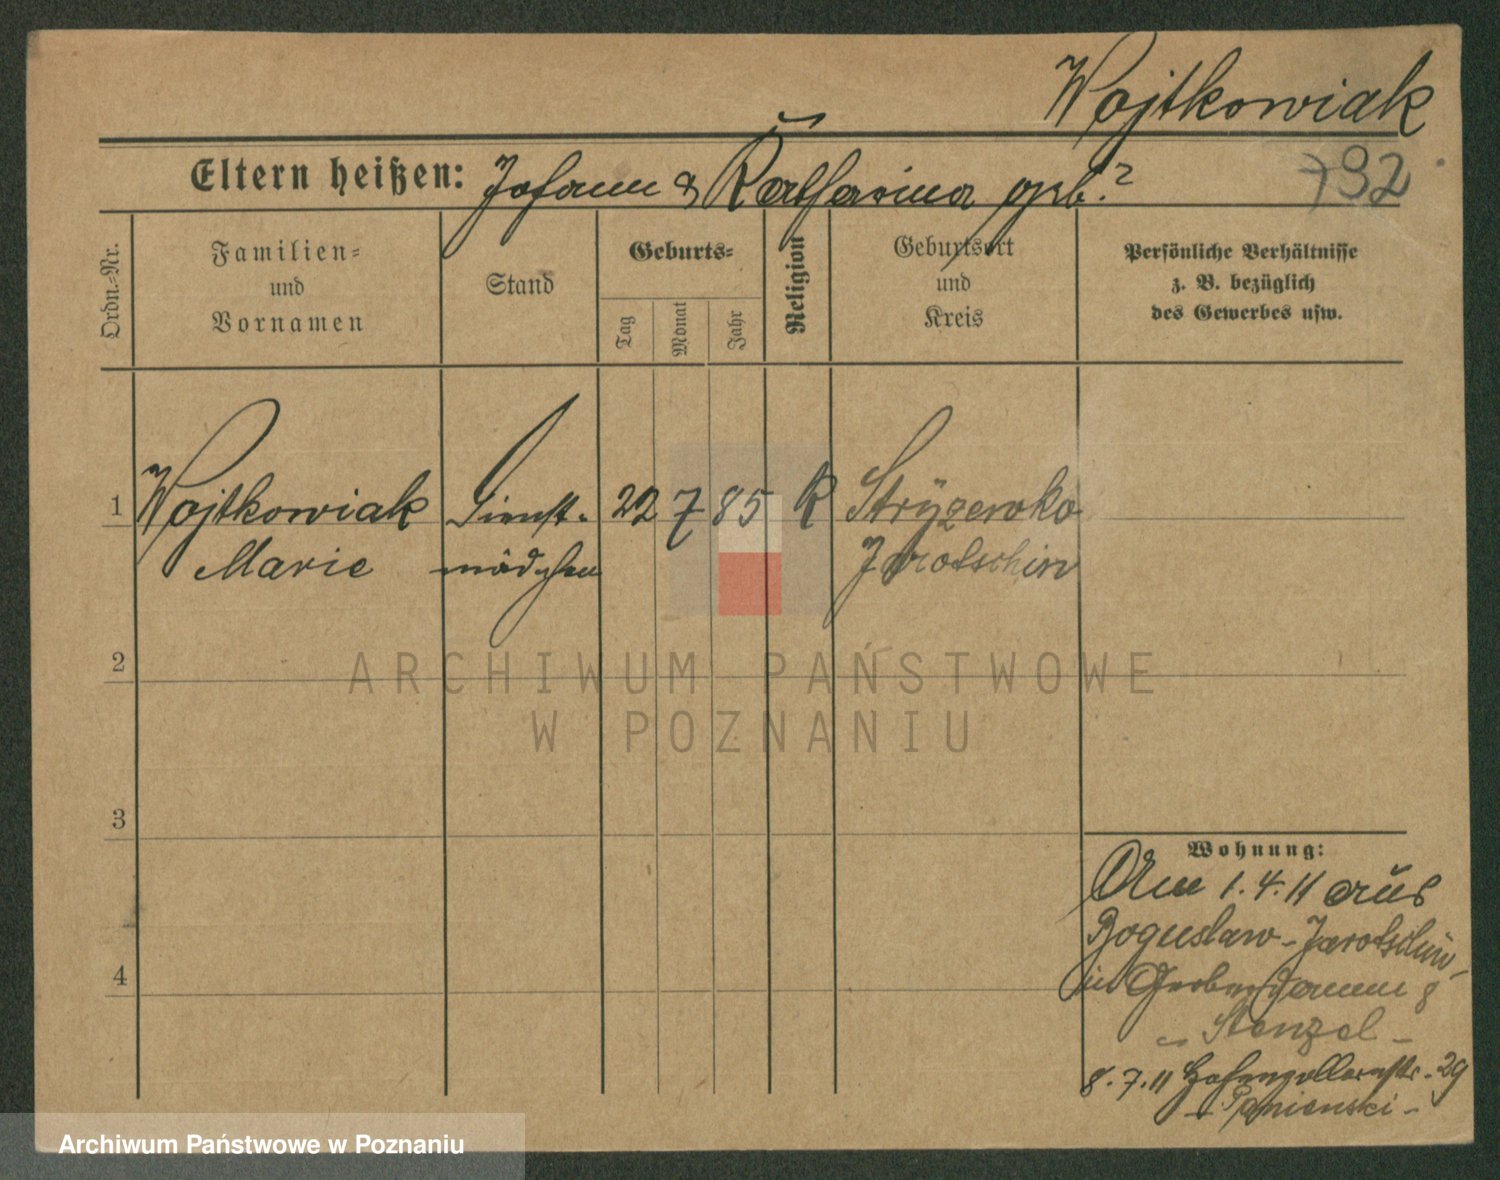 Wojtkowiak
Eltern heißen: Johann & Katharina geb. ?
792
Ordn.-Nr.
Familien-
und
Vornamen
Stand
Geburts-
Tag
Monat
Jahr
Religion
Geburtsort
und
Kreis
Persönliche Verhältnisse
z. B. bezüglich
des Gewerbes usw.
1 Wojtkowiak Dienst- 22 7 85 K Stryzewko
Marie mädchen Jarotschin
2
3
4
Wohnung:
Am 1.4.11 aus
Boguslaw - Jarotschin,
in Grabendamm 8
- Stenzel -
8.7.11 Hohenzollernstr. 29
- Panienski -
ARCHIWUM PAŃSTWOWE
W POZNANIU
Archiwum Państwowe w Poznaniu